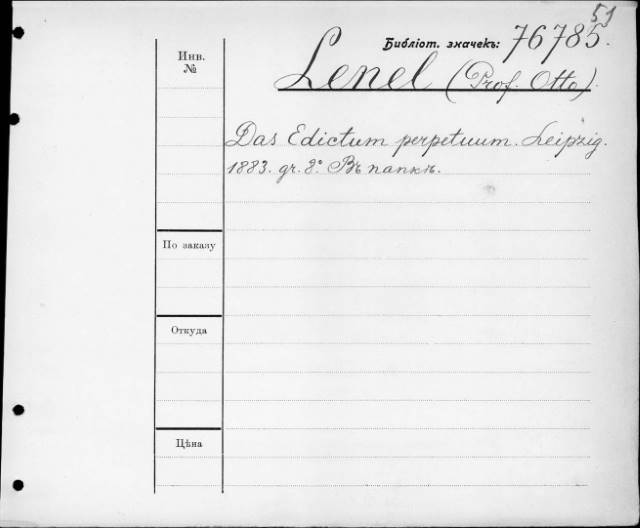 51
Библіот. значекъ: 76785.
Инв.
№
Lenel (Prof. Otto).
Das Edictum perpetuum. Leipzig.
1883. gr. 8.° Въ папкѣ.
По заказу
Откуда
Цѣна